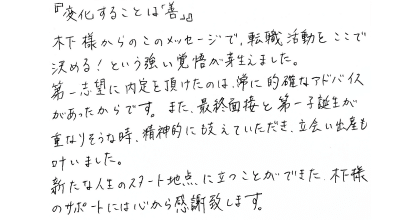 『変化することは「善」』
木下様からのこのメッセージで、転職活動をここで
決める!という強い覚悟が芽生えました。
第一志望に内定を頂けたのは、常に的確なアドバイス
があったからです。また、最終面接と第一子誕生が
重なりそうな時、精神的に支えていただき、立会い出産も
叶いました。
新たな人生のスタート地点に立つことができた、木下様
のサポートには心から感謝致します。